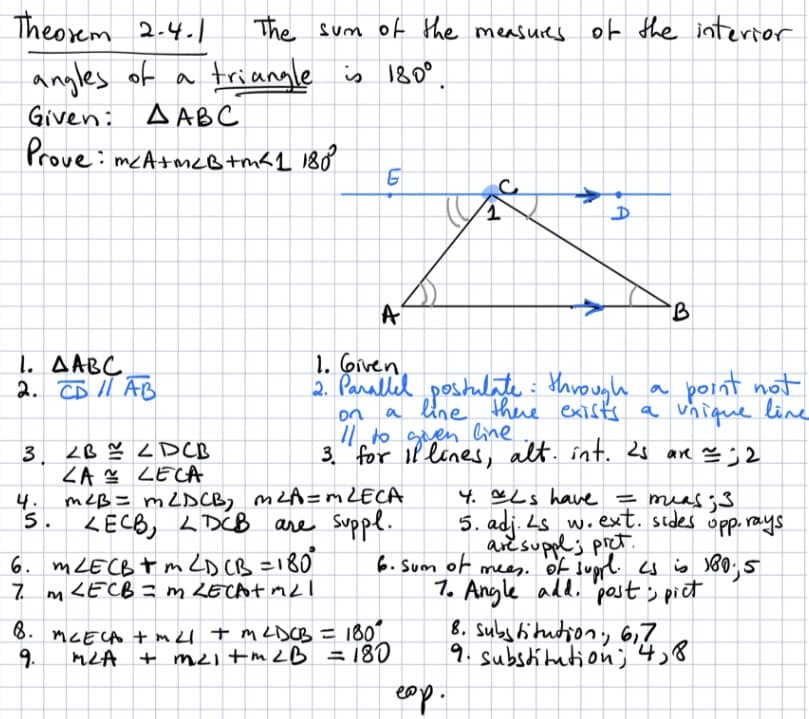 Theorem 2.4.1 The sum of the measures of the interior
angles of a triangle is 180°.
Given: △ABC
Prove: m∠A+m∠B+m∠1 180°
E C D
1
A B
1. △ABC 1. Given
2. CD // AB 2. Parallel postulate: through a point not
on a line there exists a unique line
// to given line.
3. ∠B ≅ ∠DCB 3. for // lines, alt. int. ∠s are ≅; 2
∠A ≅ ∠ECA
4. m∠B = m∠DCB, m∠A = m∠ECA 4. ≅∠s have = meas; 3
5. ∠ECB, ∠DCB are suppl. 5. adj. ∠s w. ext. sides opp. rays
are suppl; pict.
6. m∠ECB + m∠DCB = 180° 6. sum of meas. of suppl. ∠s is 180; 5
7. m∠ECB = m∠ECA + m∠1 7. Angle add. post; pict
8. m∠ECA + m∠1 + m∠DCB = 180° 8. substitution; 6,7
9. m∠A + m∠1 + m∠B = 180 9. substitution; 4,8
eop.